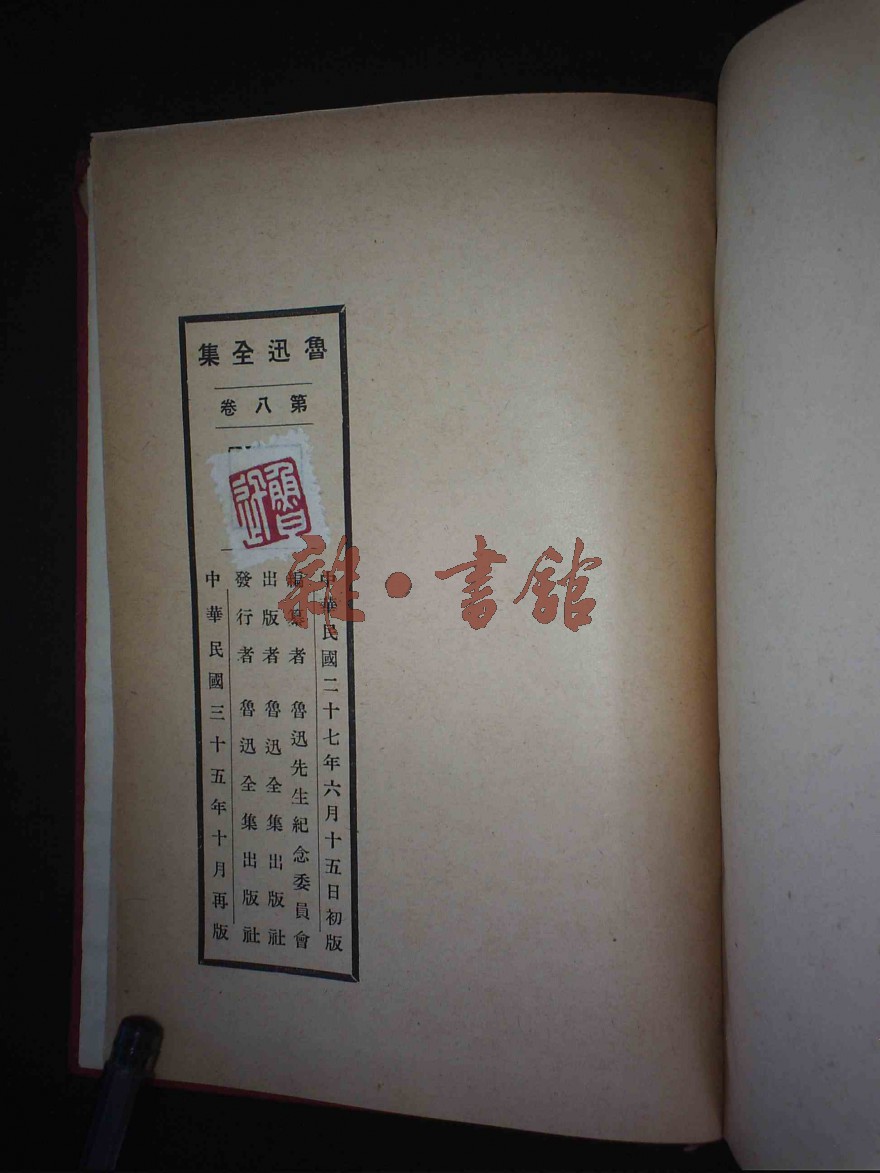 魯迅全集
第八卷
魯迅
中華民國二十七年六月十五日初版
編纂者 魯迅先生紀念委員會
出版者 魯迅全集出版社
發行者 魯迅全集出版社
中華民國三十五年十月再版
雜·書館